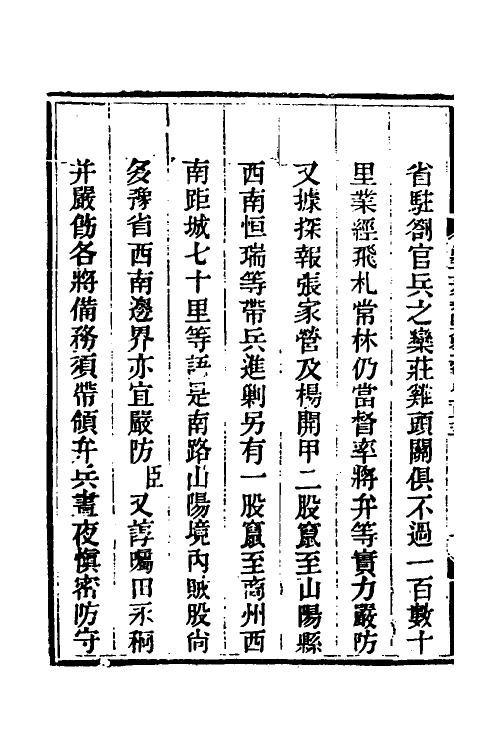 省駐劄官兵之欒莊雞頭關俱不過一百數十
里業經飛札常林仍當督率將弁等實力嚴防
又據探報張家營及楊開甲二股竄至山陽縣
西南恒瑞等帶兵進剿另有一股竄至商州西
南距城七十里等語是南路山陽境內賊股尙
多豫省西南邊界亦宜嚴防臣又諄囑田永桐
并嚴飭各將備務須帶領弁兵晝夜慎密防守